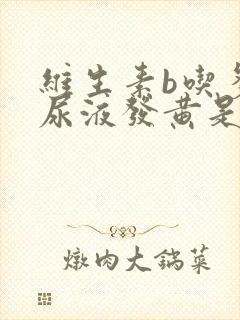 維生素b喫
尿液發黄是
燉肉大鍋菜